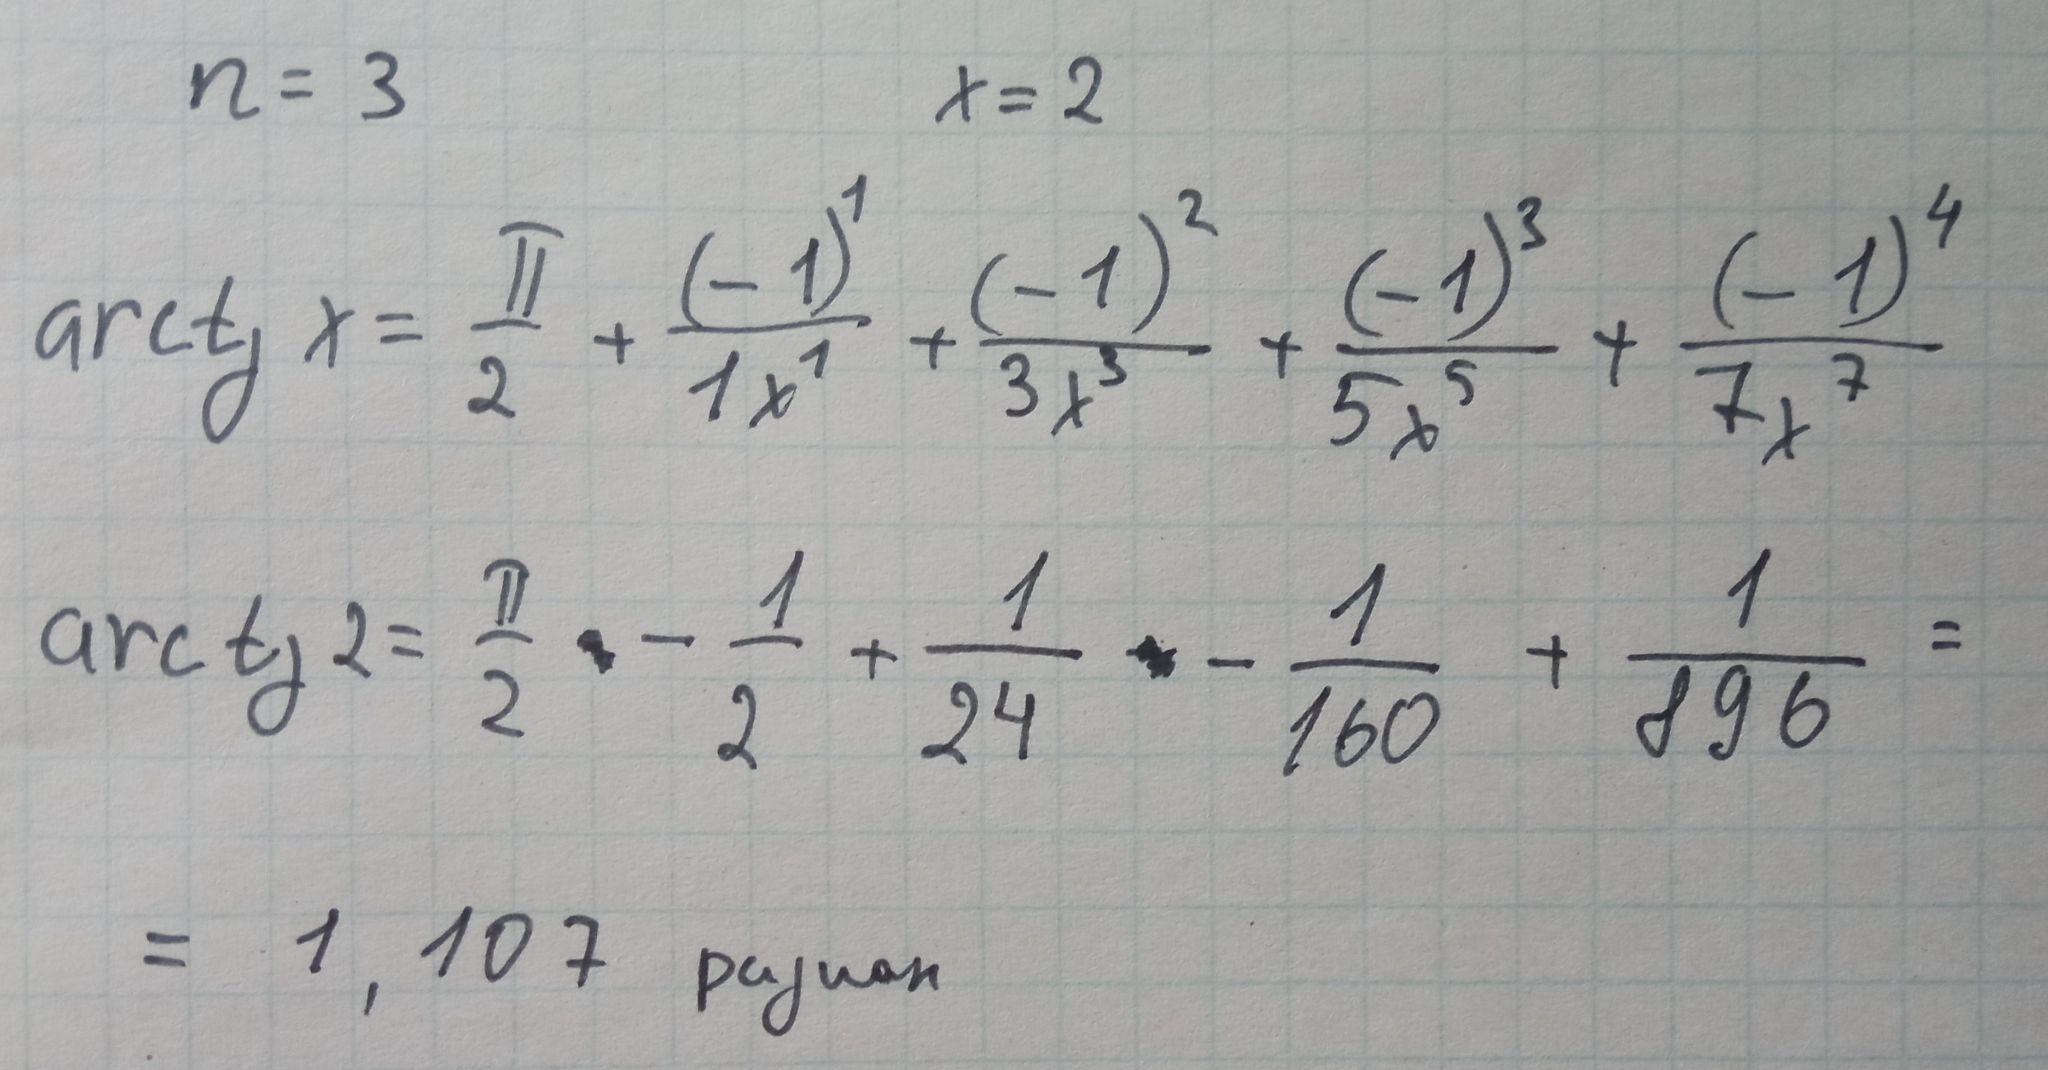 n = 3 x = 2
arctg x = π/2 + (-1)^1/1x^1 + (-1)^2/3x^3 + (-1)^3/5x^5 + (-1)^4/7x^7
arctg 2 = π/2 - 1/2 + 1/24 - 1/160 + 1/896 =
= 1,107 радиан